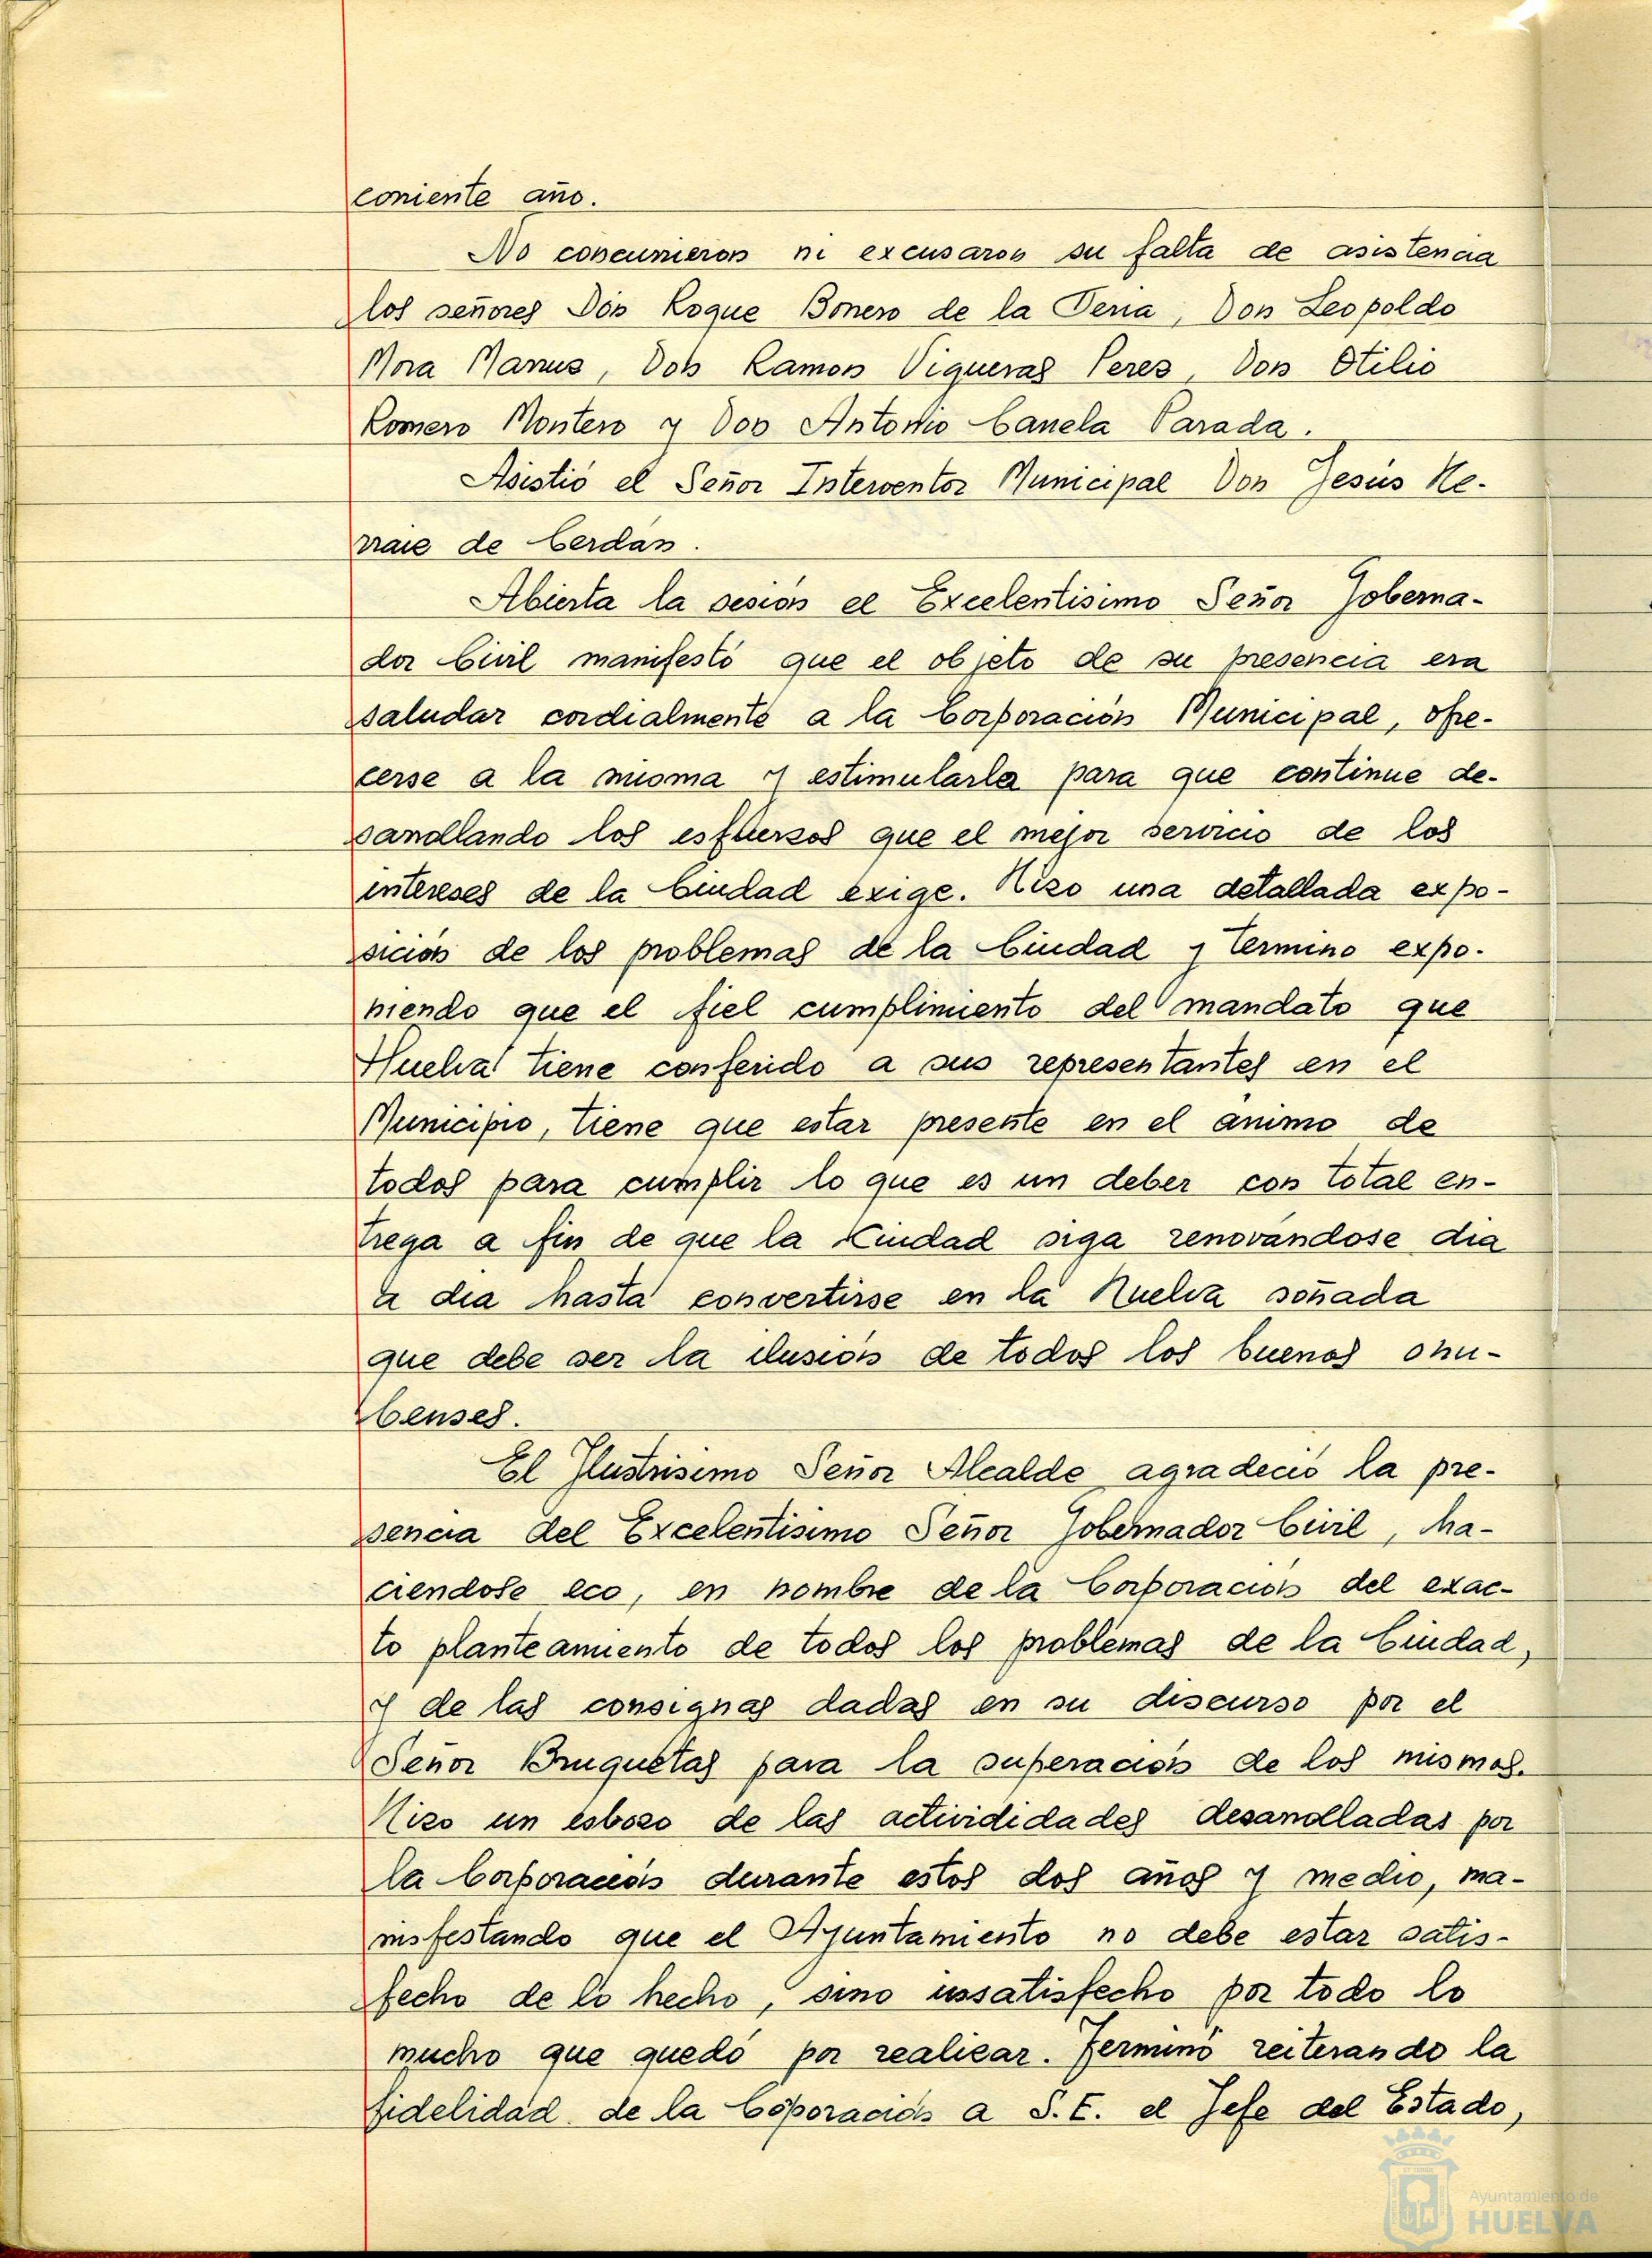 corriente año.
No concurrieron ni excusaron su falta de asistencia
los señores Don Roque Borrero de la Feria, Don Leopoldo
Mora Marrus, Don Ramon Vigueras Peres, Don Otilio
Romero Montero y Don Antonio Canela Parada.
Asistió el Señor Interventor Municipal Don Jesús He-
rraie de Cerdán.
Abierta la sesión el Excelentisimo Señor Goberna-
dor Civil manifestó que el objeto de su presencia era
saludar cordialmente a la Corporación Municipal, ofre-
cerse a la misma y estimularla para que continue de-
sarrollando los esfuersos que el mejor servicio de los
intereses de la Ciudad exige. Hizo una detallada expo-
sición de los problemas de la Ciudad y termino expo-
niendo que el fiel cumplimiento del mandato que
Huelva tiene conferido a sus representantes en el
Municipio, tiene que estar presente en el animo de
todos para cumplir lo que es un deber con total en-
trega a fin de que la Ciudad siga renovándose dia
a dia hasta convertirse en la Huelva soñada
que debe ser la ilusión de todos los buenos onu-
benses.
El Ilustrisimo Señor Alcalde agradeció la pre-
sencia del Excelentisimo Señor Gobernador Civil, ha-
ciendose eco, en nombre de la Corporación del exac-
to planteamiento de todos los problemas de la Ciudad,
y de las consignas dadas en su discurso por el
Señor Bruquetas para la superación de los mismos.
Hizo un esbozo de las actividídades desarrolladas por
la Corporación durante estos dos años y medio, ma-
nisfestando que el Ayuntamiento no debe estar satis-
fecho de lo hecho, sino insatisfecho por todo lo
mucho que quedó por realizar. Terminó reiterando la
fidelidad de la Coporación a S.E. el Jefe del Estado,
Ayuntamiento de
HUELVA